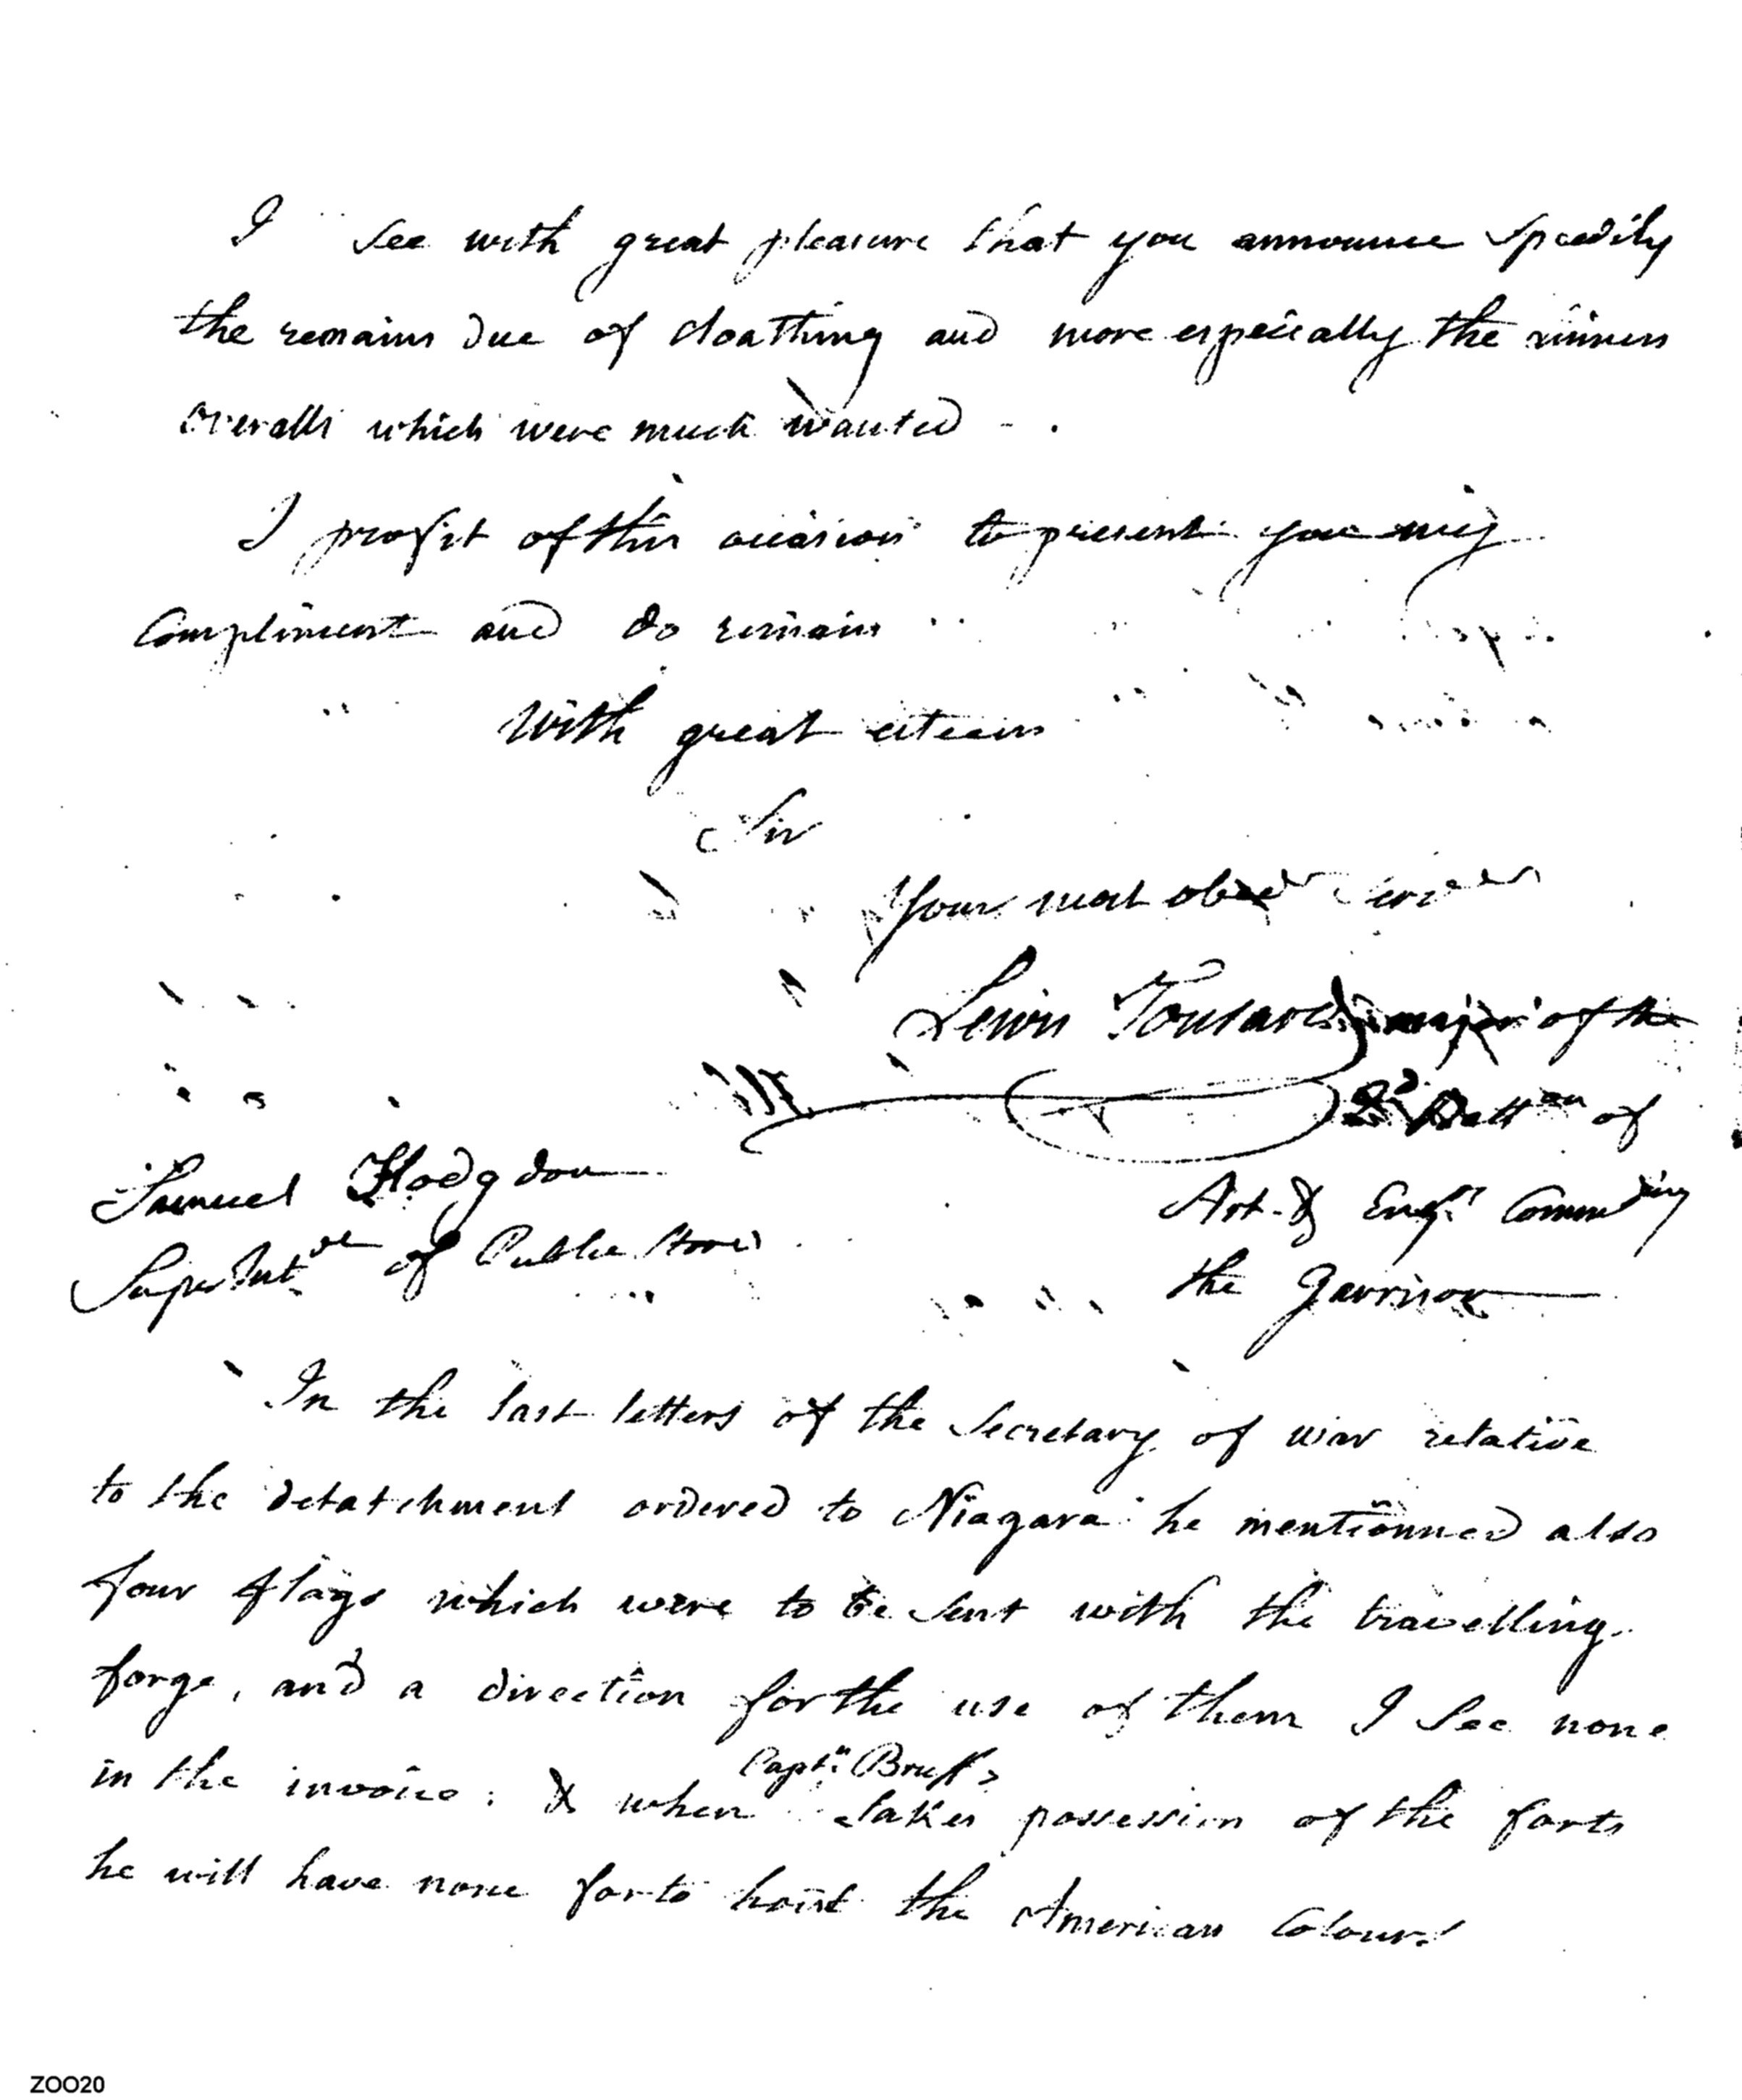 I see with great pleasure that you announce Speedily
the remains due of cloathing and more especially the
overalls which were much wanted - .
I profit of this occasion to present you my
Compliment and do remain
With great esteem
Sir
Your most obed
Lewis Tousard major of the
2d Batton of
Samuel Hodgdon
Art. & Engrs Commding
Superintdt of Public Stores
the Garrison
In the last letters of the Secretary of war relative
to the detatchment ordered to Niagara he mentionned also
four flags which were to be sent with the travelling
forge, and a direction for the use of them I see none
Captn Bruff
in the invoice : & when takes possession of the forts
he will have none for to hoist the American Colours
ZOO20